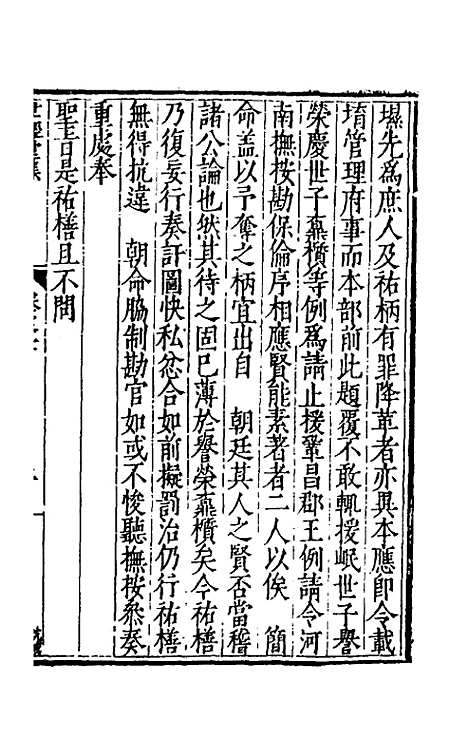 爀先為庶人及祐柄有罪降革者亦異本應即令載
堉管理府事而本部前此題覆不敢輒援岷世子譽
榮慶世子鼒櫍等例為請止援鞏昌郡王例請令河
南撫按勘保倫序相應賢能素著者二人以俟　簡
命盖以予奪之柄宜出自　朝廷其人之賢否當稽
諸公論也然其待之固已薄於譽榮鼒櫍矣今祐橏
乃復妄行奏訐圖快私忿合如前擬罰治仍行祐橏
無得抗違　朝命脇制勘官如或不悛聽撫按叅奏
重處奉
聖旨是祐橏且不問